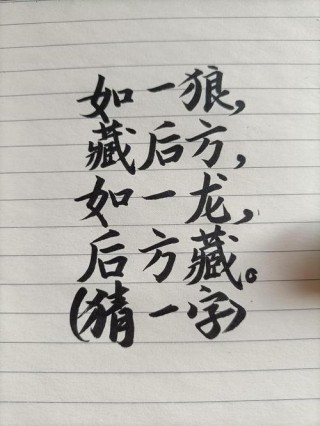 如一狼，
藏后方，
如一龙，
后方藏。
（猜一字）